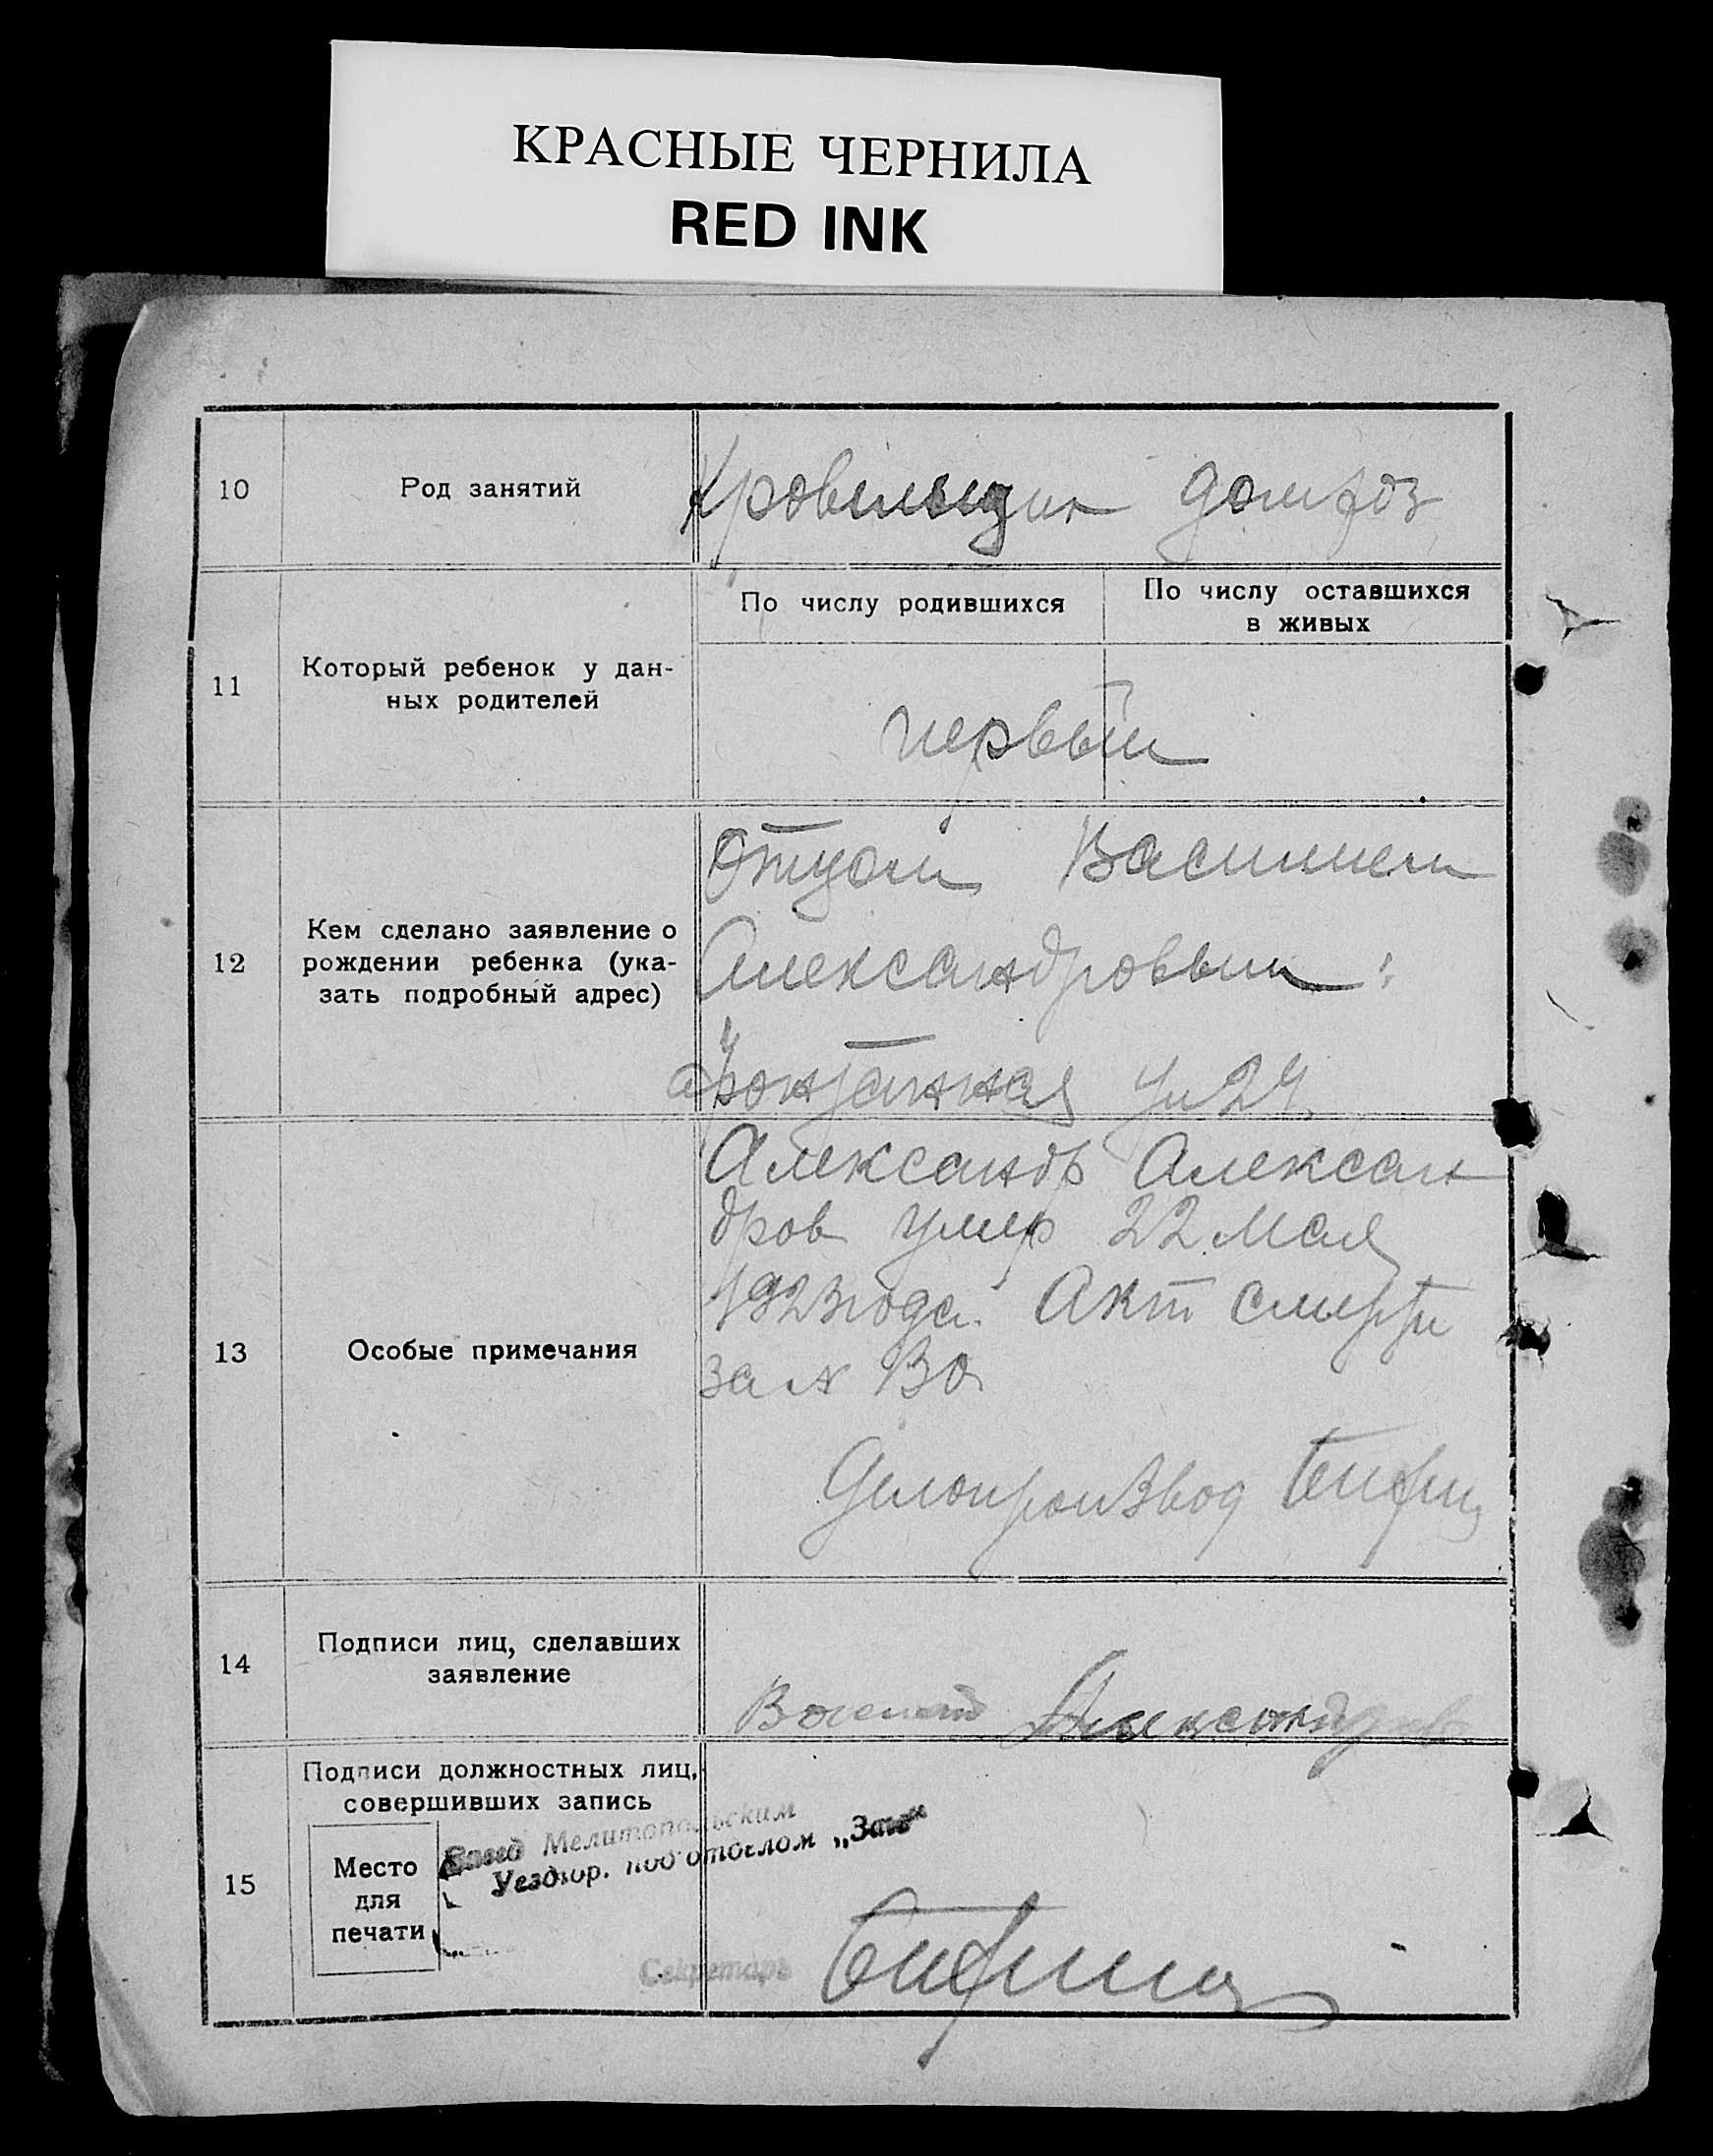 КРАСНЫЕ ЧЕРНИЛА
RED INK
10
Род занятий
Кровельщик домхоз
11
Который ребенок у дан-
ных родителей
По числу родившихся
По числу оставшихся
в живых
первый
12
Кем сделано заявление о
рождении ребенка (ука-
зать подробный адрес)
Отцом Василием
Александровым:
Фонтанная ул 24
13
Особые примечания
Александр Алексан
дров умер 22 мая
1923 года. Акт смерти
за №
Делопроизвод
14
Подписи лиц, сделавших
заявление
Василий Александров
15
Подписи должностных лиц,
совершивших запись
Место
для
печати
Мелитопольским
Уездгор. подотделом „Загс“
Секретарь